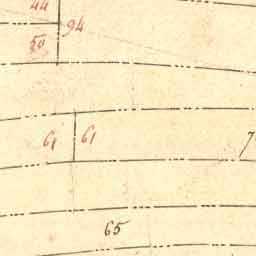 44
94
50
61 61
65